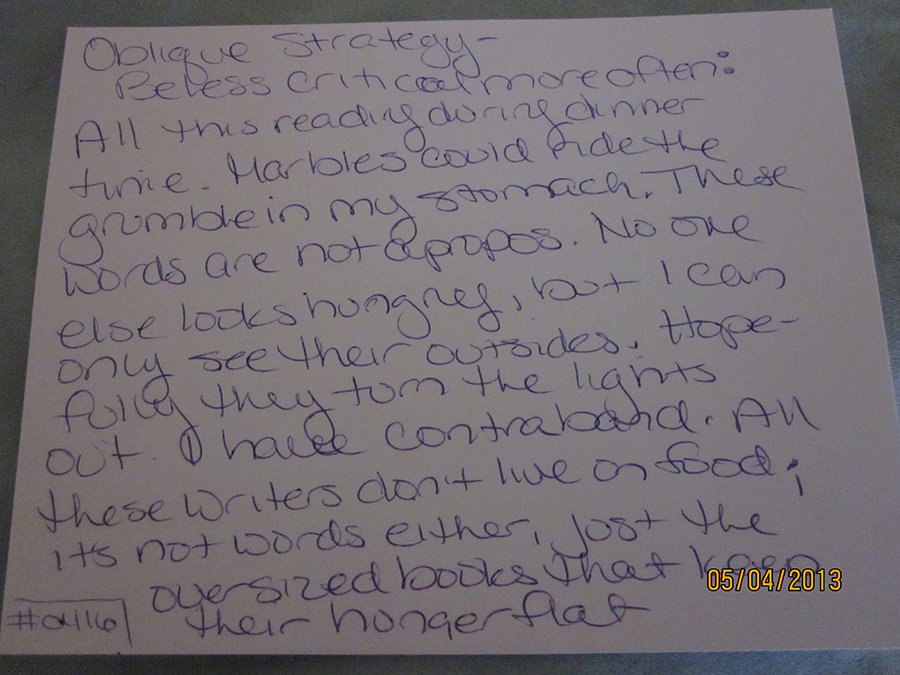 Oblique Strategy-
Be less critical more often:
All this reading during dinner
time. Marbles could hide the
grumble in my stomach. These
words are not apropos. No one
else looks hungrey, but I can
only see their outsides. Hope-
fully they turn the lights
out. I have contraband. All
these writers don't live on food;
it's not words either, just the
oversized books that keep
their hunger flat
#04116
05/04/2013